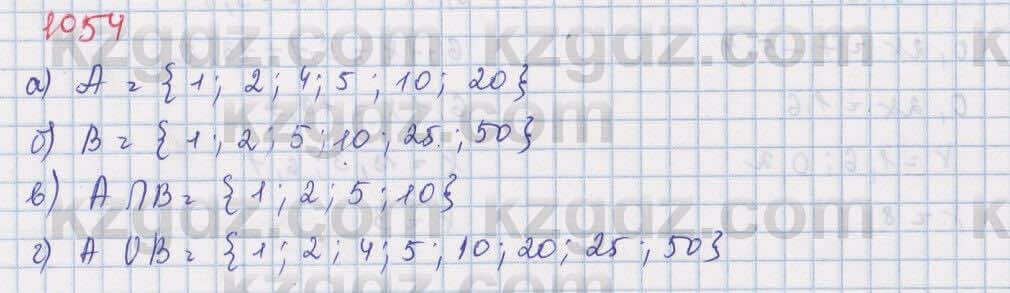 1054
а) A = {1; 2; 4; 5; 10; 20}
б) B = {1; 2; 5; 10; 25; 50}
в) A ∩ B = {1; 2; 5; 10}
г) A ∪ B = {1; 2; 4; 5; 10; 20; 25; 50}
kzgdz.com
kzgdz.com
kzgdz.com
kzgdz.com
kzgdz.com